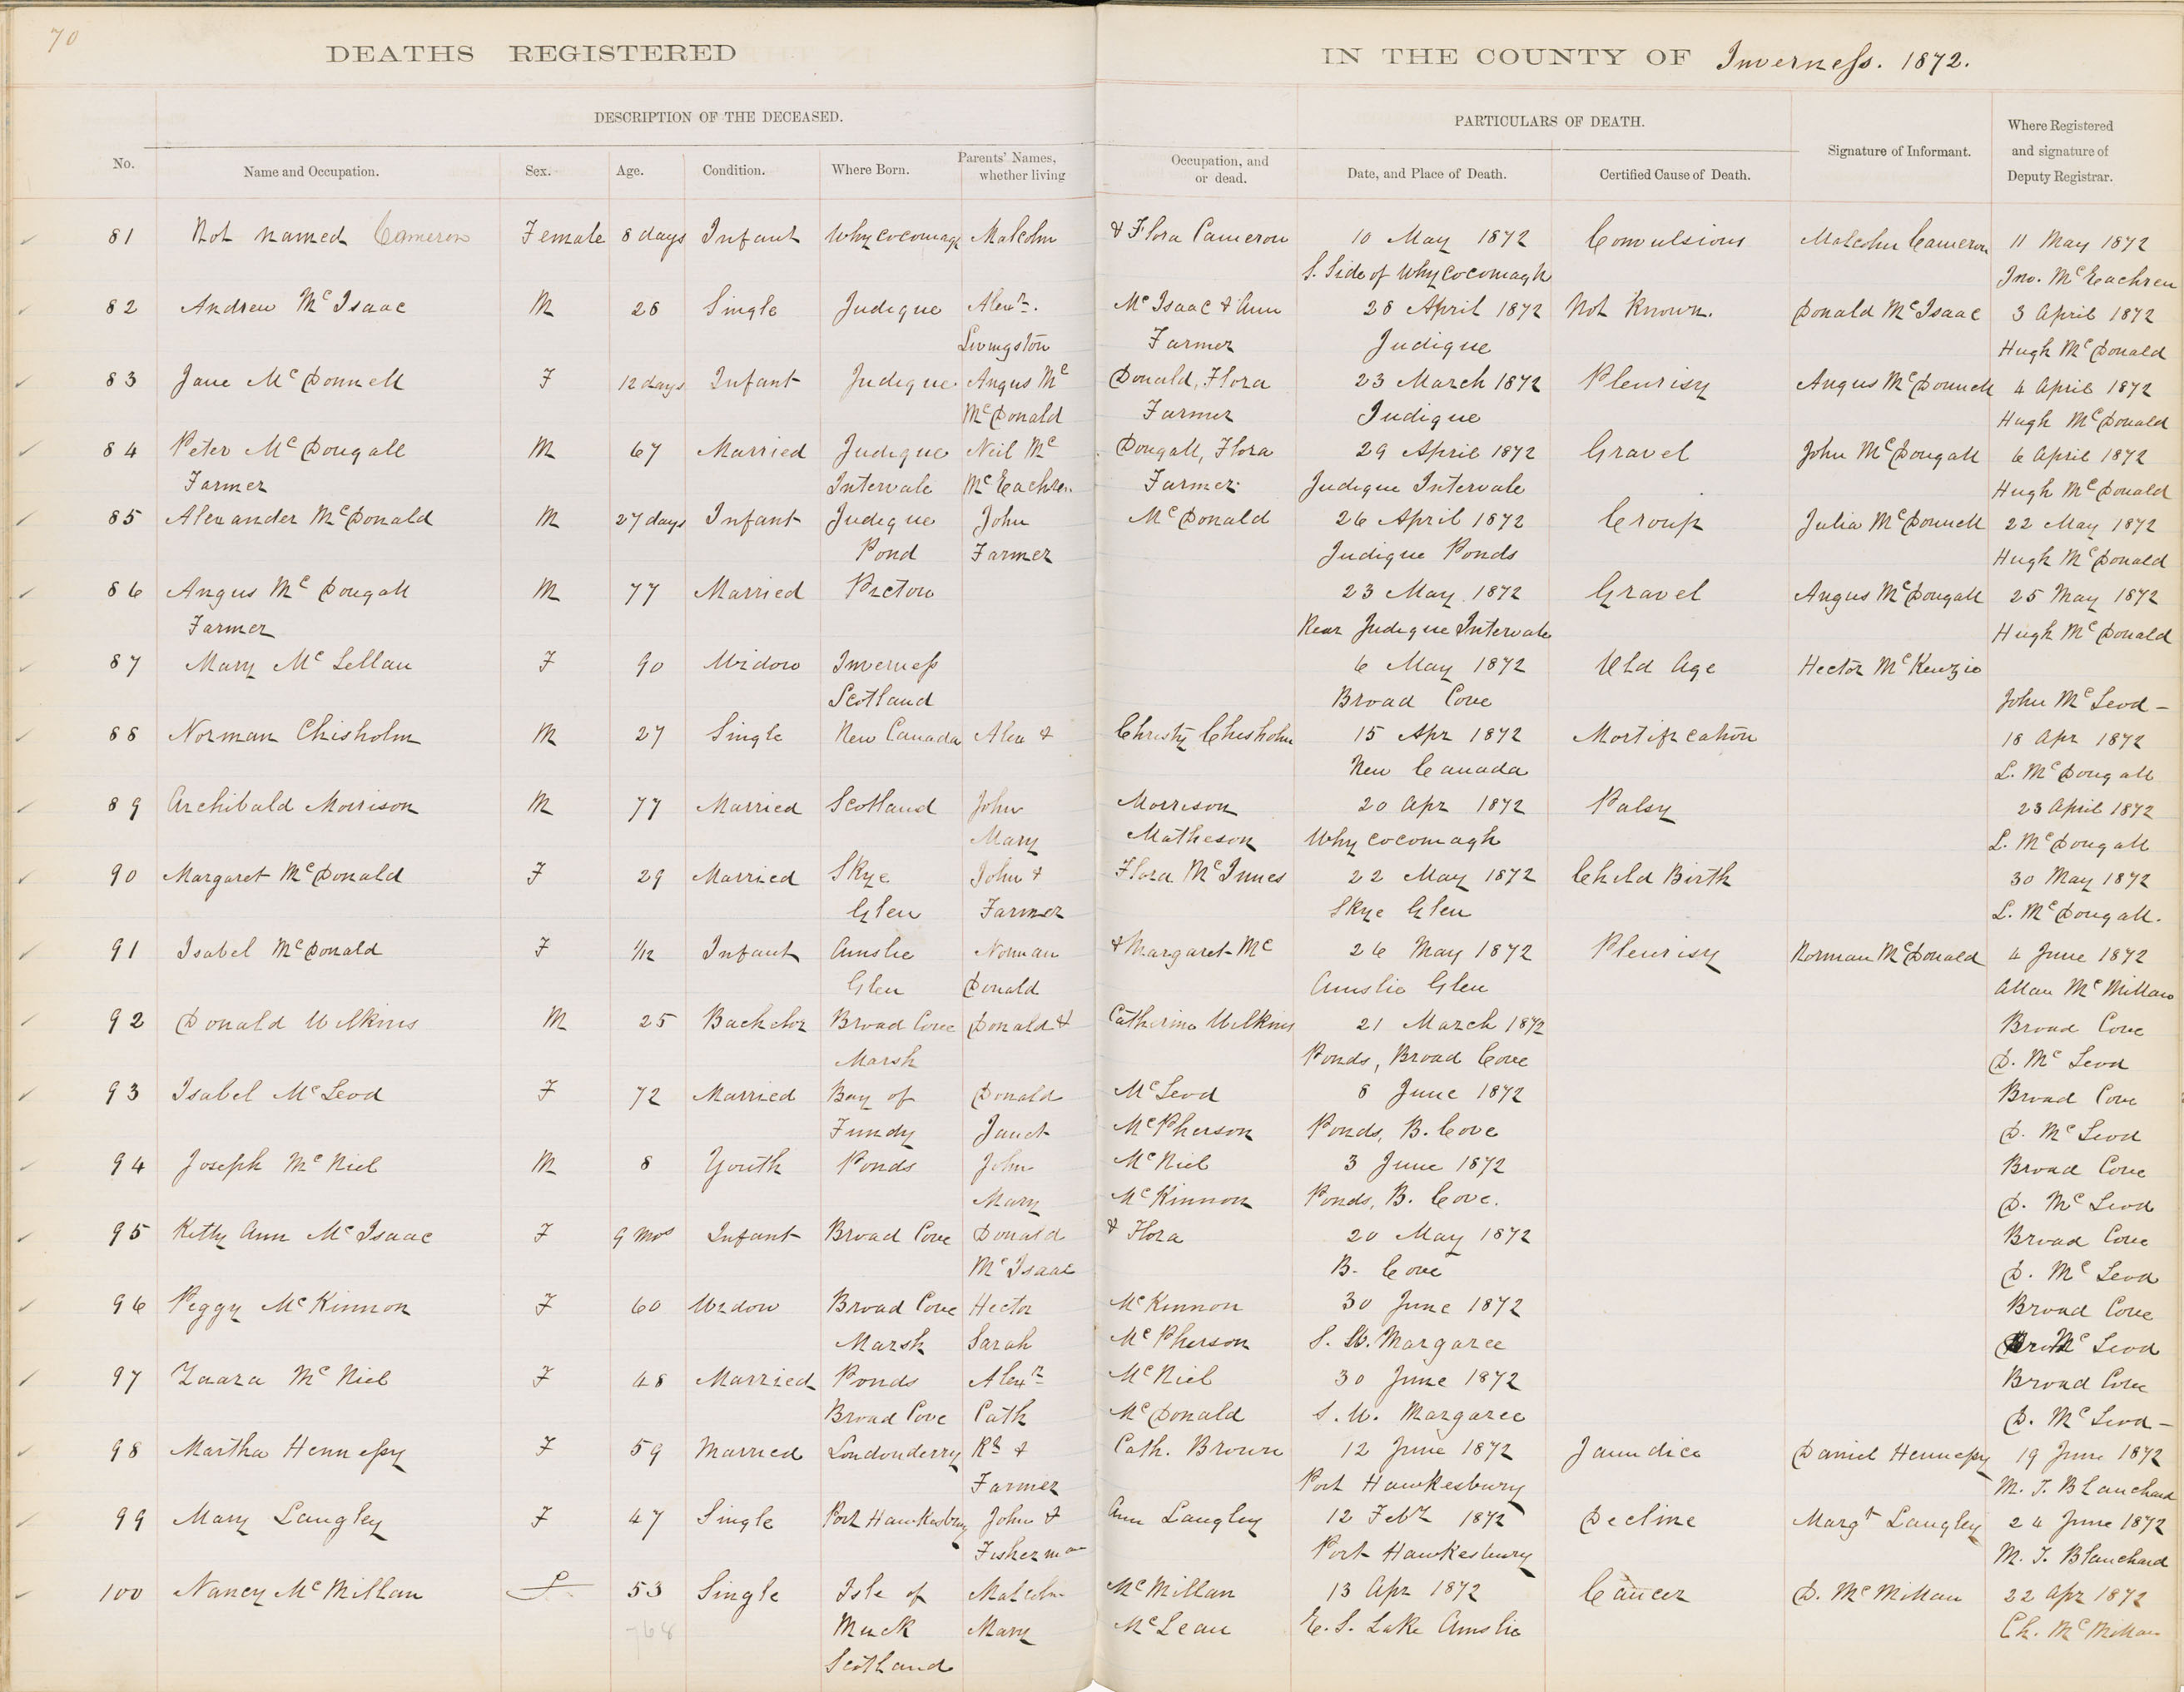 70
DEATHS REGISTERED IN THE COUNTY OF Inverness. 1872.
DESCRIPTION OF THE DECEASED. PARTICULARS OF DEATH.
No. Name and Occupation. Sex. Age. Condition. Where Born. Parents' Names, whether living Occupation, and or dead. Date, and Place of Death. Certified Cause of Death. Signature of Informant. Where Registered and signature of Deputy Registrar.
81 Not named Cameron Female 8 days Infant Whycocomagh Malcolm & Flora Cameron 10 May 1872 Convulsions Malcolm Cameron 11 May 1872
S. Side of Whycocomagh Jno. McEachren
82 Andrew McIsaac M 28 Single Judique Alexr. McIsaac & Ann 28 April 1872 Not Known. Donald McIsaac 3 April 1872
Livingston Farmer Judique Hugh McDonald
83 Jane McDonnell F 12 days Infant Judique Angus Mc Donald, Flora 23 March 1872 Pleurisy Angus McDonnell 4 April 1872
McDonald Farmer Judique Hugh McDonald
84 Peter McDougall M 67 Married Judique Neil Mc Dougall, Flora 29 April 1872 Gravel John McDougall 6 April 1872
Farmer Intervale McEachren Farmer Judique Intervale Hugh McDonald
85 Alexander McDonald M 27 days Infant Judique John McDonald 26 April 1872 Croup Julia McDonnell 22 May 1872
Pond Farmer Judique Ponds Hugh McDonald
86 Angus McDougall M 77 Married Pictou 23 May 1872 Gravel Angus McDougall 25 May 1872
Farmer Rear Judique Intervale Hugh McDonald
87 Mary McLellan F 90 Widow Inverness 6 May 1872 Old Age Hector McKenzie
Scotland Broad Cove John McLeod -
88 Norman Chisholm M 27 Single New Canada Alex & Christy Chisholm 15 Apr 1872 Mortification 18 Apr 1872
New Canada L. McDougall
89 Archibald Morrison M 77 Married Scotland John Morrison 20 Apr 1872 Palsy 23 April 1872
Mary Matheson Whycocomagh L. McDougall
90 Margaret McDonald F 29 Married Skye John & Flora McInnes 22 May 1872 Child Birth 30 May 1872
Glen Farmer Skye Glen L. McDougall.
91 Isabel McDonald F 1/12 Infant Ainslie Norman & Margaret Mc 26 May 1872 Pleurisy Norman McDonald 4 June 1872
Glen Donald Ainslie Glen Allan McMillan
92 Donald Wilkins M 25 Bachelor Broad Cove Donald & Catherine Wilkins 21 March 1872 Broad Cove
Marsh Ponds, Broad Cove D. McLeod
93 Isabel McLeod F 72 Married Bay of Donald McLeod 8 June 1872 Broad Cove
Fundy Janet McPherson Ponds, B. Cove D. McLeod
94 Joseph McNiel M 8 Youth Ponds John McNiel 3 June 1872 Broad Cove
Mary McKinnon Ponds, B. Cove. D. McLeod
95 Kitty Ann McIsaac F 9 mos Infant Broad Cove Donald & Flora 20 May 1872 Broad Cove
McIsaac B. Cove D. McLeod
96 Peggy McKinnon F 60 Widow Broad Cove Hector McKinnon 30 June 1872 Broad Cove
Marsh Sarah McPherson S. W. Margaree McLeod
97 Zaara McNiel F 48 Married Ponds Alexr McNiel 30 June 1872 Broad Cove
Broad Cove Cath McDonald S. W. Margaree D. McLeod -
98 Martha Hennessy F 59 Married Londonderry Rd & Cath. Brown 12 June 1872 Jaundice Daniel Hennessy 19 June 1872
Farmer Port Hawkesbury M. J. Blanchard
99 Mary Langley F 47 Single Port Hawkesbury John & Ann Langley 12 Feby 1872 Decline Margt Langley 24 June 1872
Fisherman Port Hawkesbury M. J. Blanchard
100 Nancy McMillan F 53 Single Isle of Malcolm McMillan 13 Apr 1872 Cancer D. McMillan 22 Apr 1872
768 Muck Mary McLean E. S. Lake Ainslie Ch. McMillan
Scotland